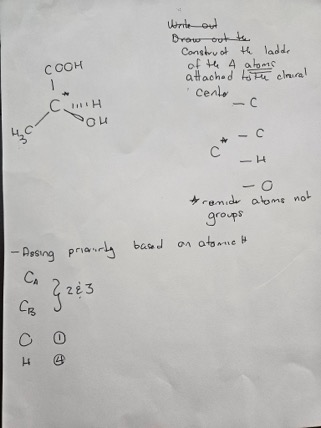 Write out
Draw out the
Construct the ladde
of the 4 atoms
attached to the chiral
cente
COOH
*
C H
OH
H3C
- C
- C
C*
- H
- O
* remider atoms not
groups
- Assing priority based on atomic #
CA
2 & 3
CB
O ①
H ④